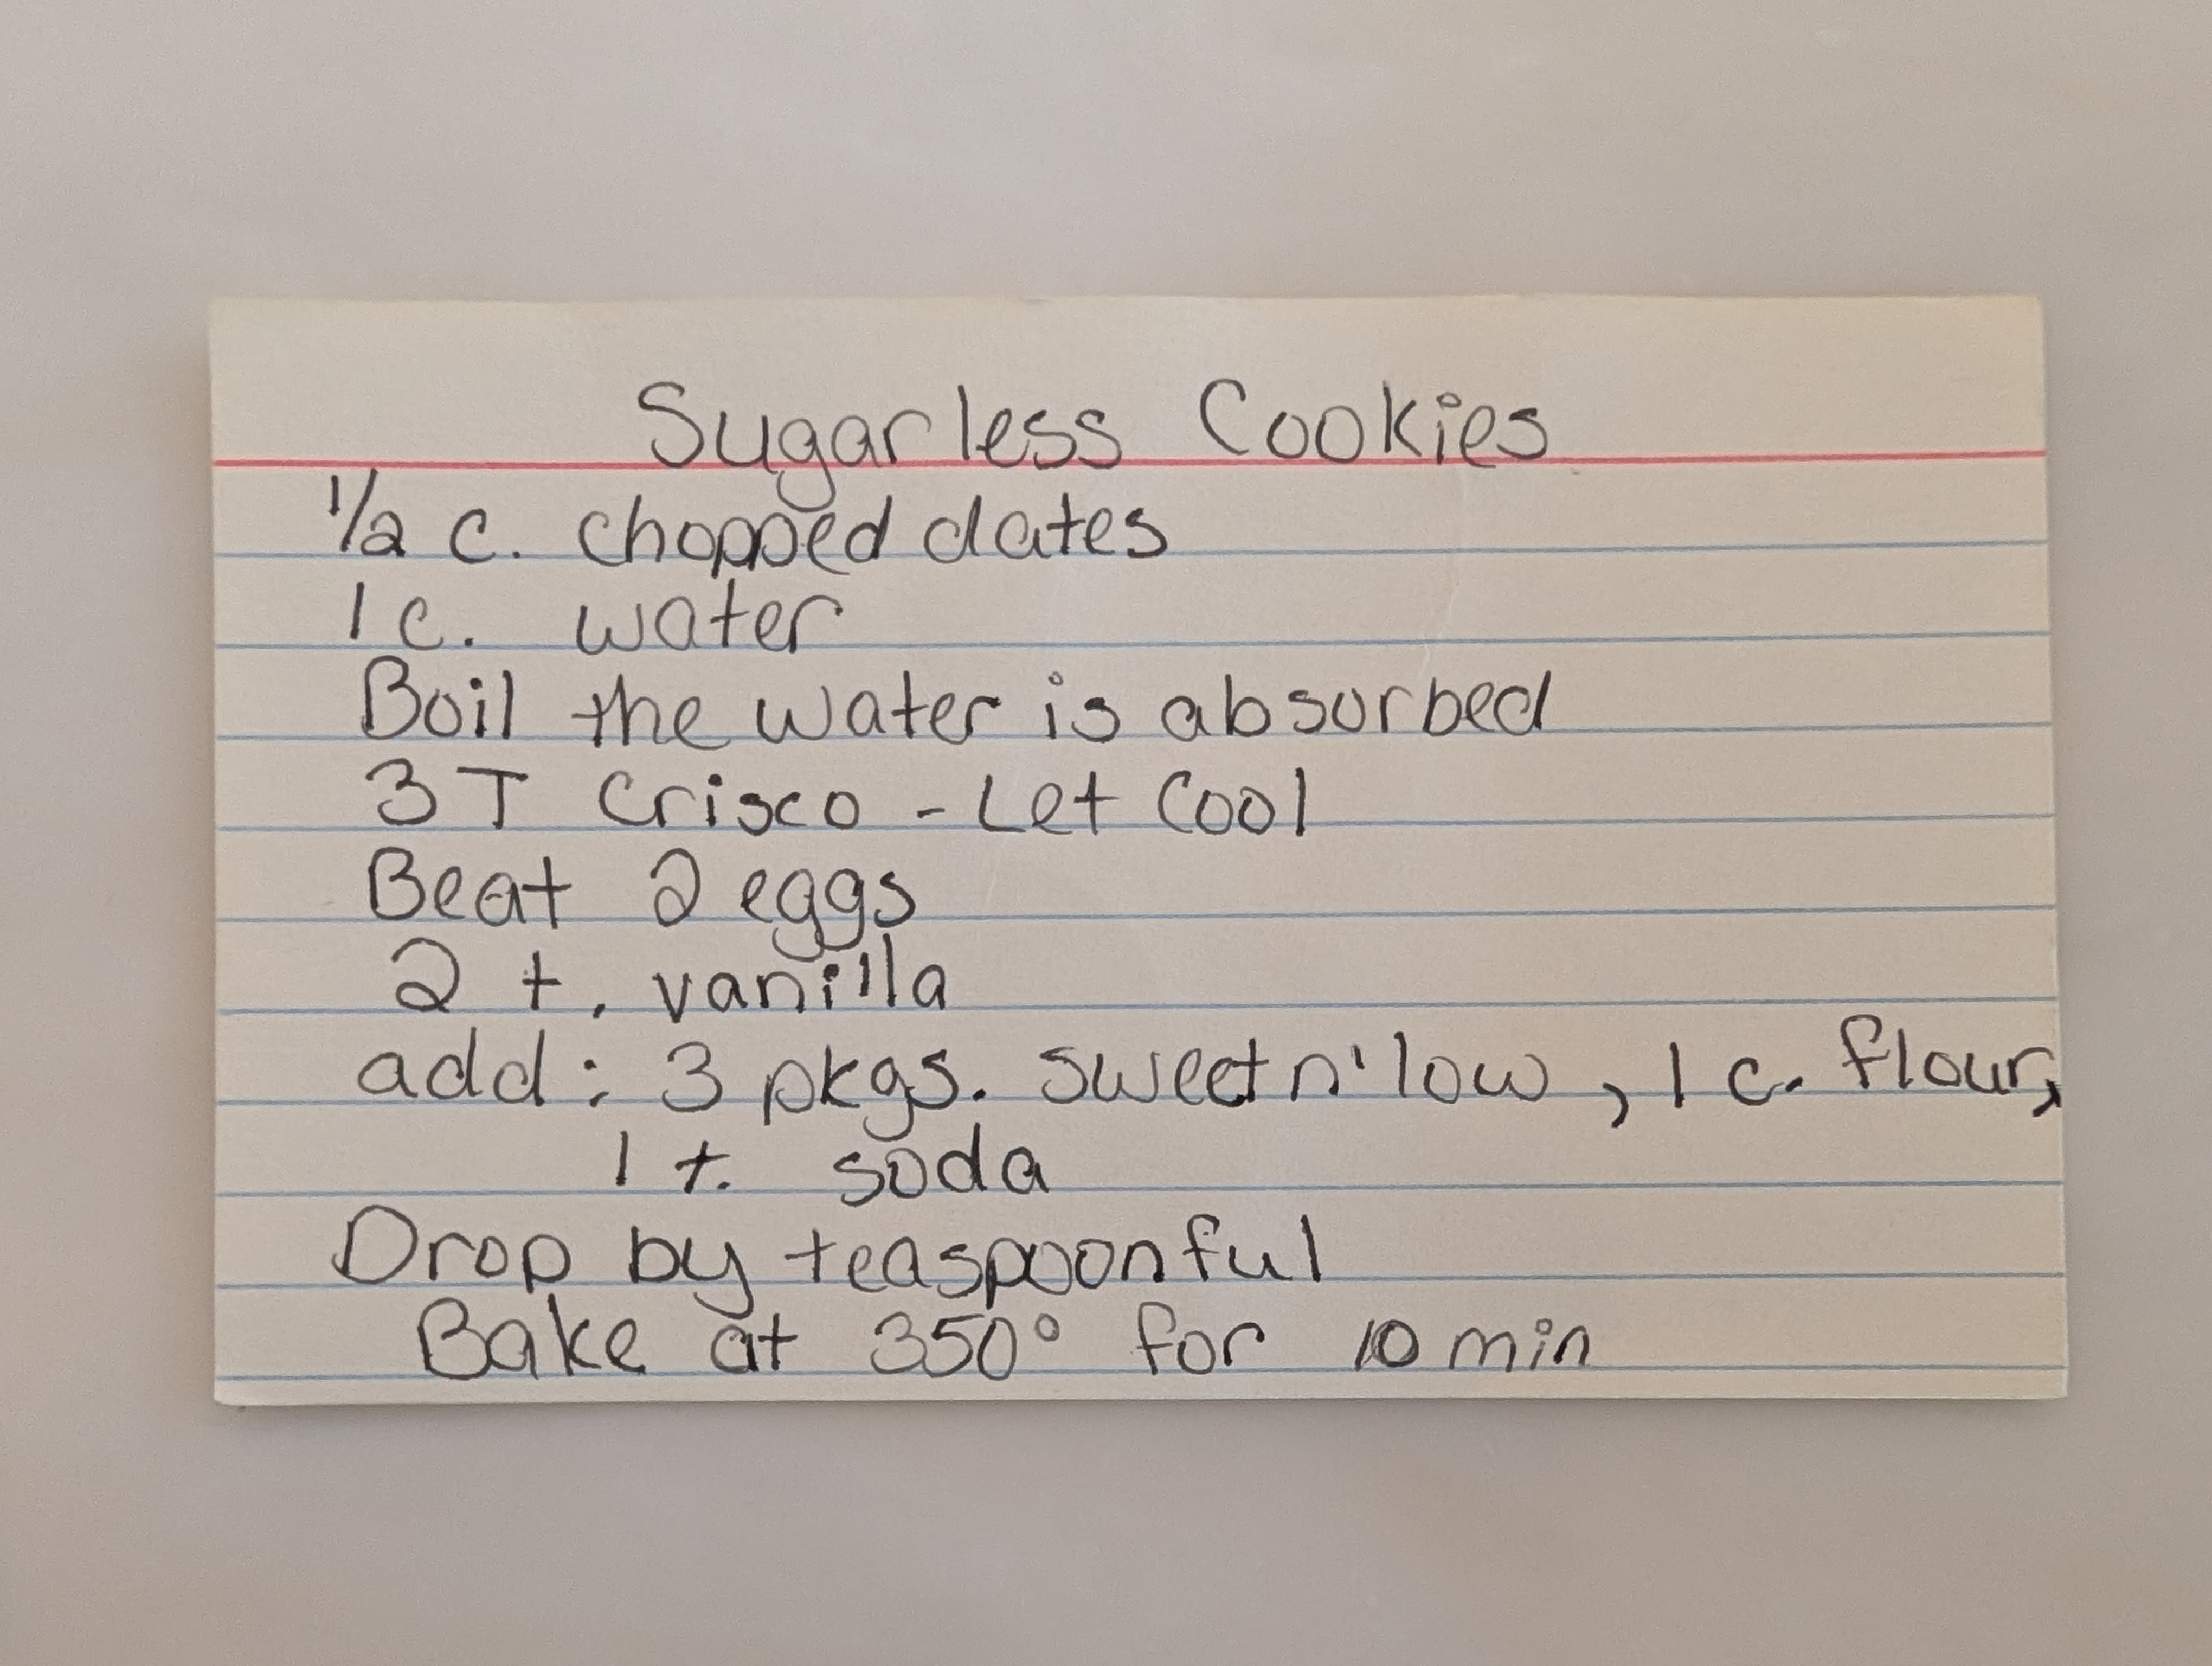 Sugarless Cookies
1/2 c. chopped dates
1 c. water
Boil the water is absorbed
3 T Crisco - Let Cool
Beat 2 eggs
2 t. vanilla
add: 3 pkgs. sweet n' low, 1 c. flour,
1 t. soda
Drop by teaspoonful
Bake at 350° for 10 min